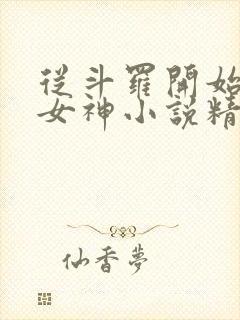 從斗羅開始
女神小説精
仙香夢